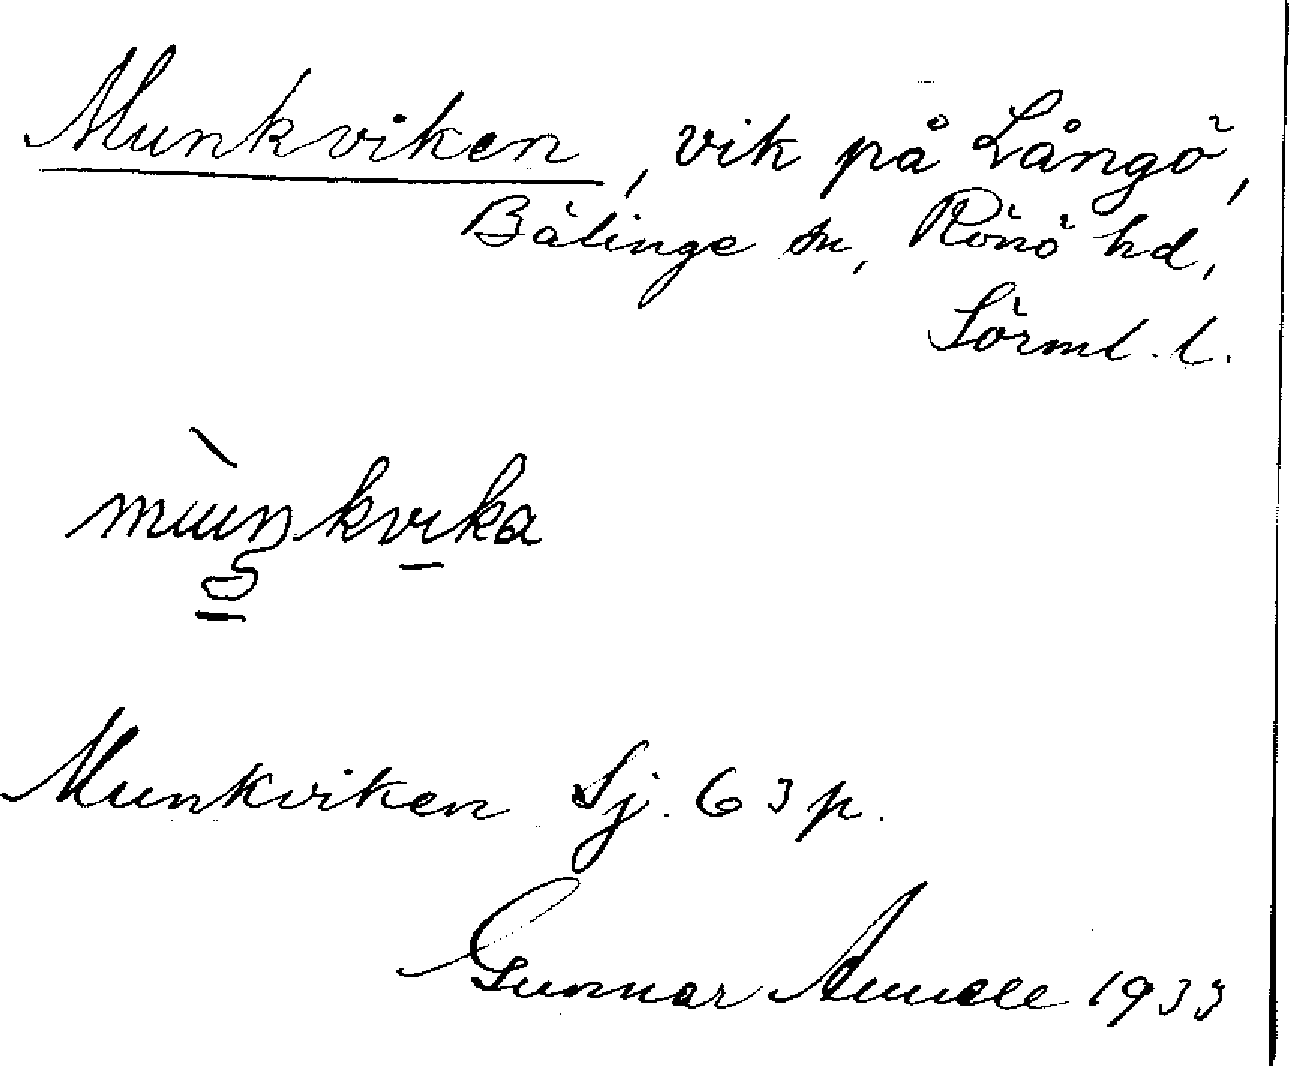 Munkviken, vik på Långö,
Bälinge sn, Rönö hd,
Sörml. l.
mùŋkvika
Munkviken Sj. 63 p.
Gunnar 1933